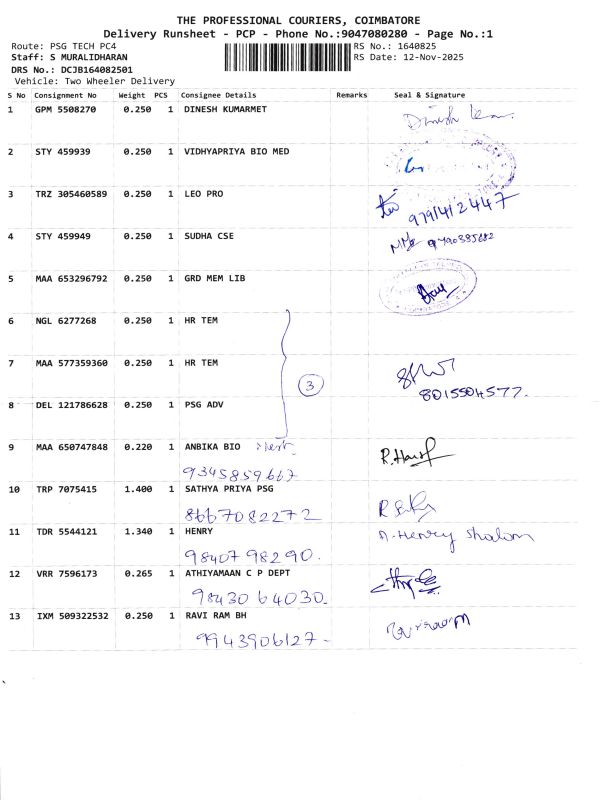 THE PROFESSIONAL COURIERS, COIMBATORE
Delivery Runsheet - PCP - Phone No.:9047080280 - Page No.:1
Route: PSG TECH PC4 RS No.: 1640825
Staff: S MURALIDHARAN RS Date: 12-Nov-2025
DRS No.: DCJB164082501
Vehicle: Two Wheeler Delivery
S No Consignment No Weight PCS Consignee Details Remarks Seal & Signature
1 GPM 5508270 0.250 1 DINESH KUMARMET
Dinesh
2 STY 459939 0.250 1 VIDHYAPRIYA BIO MED
3 TRZ 305460589 0.250 1 LEO PRO
9791412447
4 STY 459949 0.250 1 SUDHA CSE
9790385682
5 MAA 653296792 0.250 1 GRD MEM LIB
6 NGL 6277268 0.250 1 HR TEM
7 MAA 577359360 0.250 1 HR TEM
3
8015504577.
8 DEL 121786628 0.250 1 PSG ADV
9 MAA 650747848 0.220 1 ANBIKA BIO
9345859667
10 TRP 7075415 1.400 1 SATHYA PRIYA PSG
8667082272
11 TDR 5544121 1.340 1 HENRY A. Henry Shalom
98407 98290.
12 VRR 7596173 0.265 1 ATHIYAMAAN C P DEPT
98430 64030.
13 IXM 509322532 0.250 1 RAVI RAM BH
9943906127-